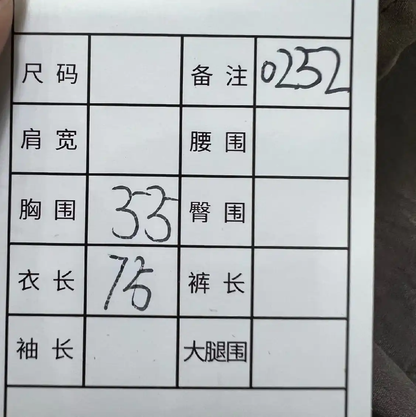 尺码 备注 0252
肩宽 腰围
胸围 53 臀围
衣长 75 裤长
袖长 大腿围